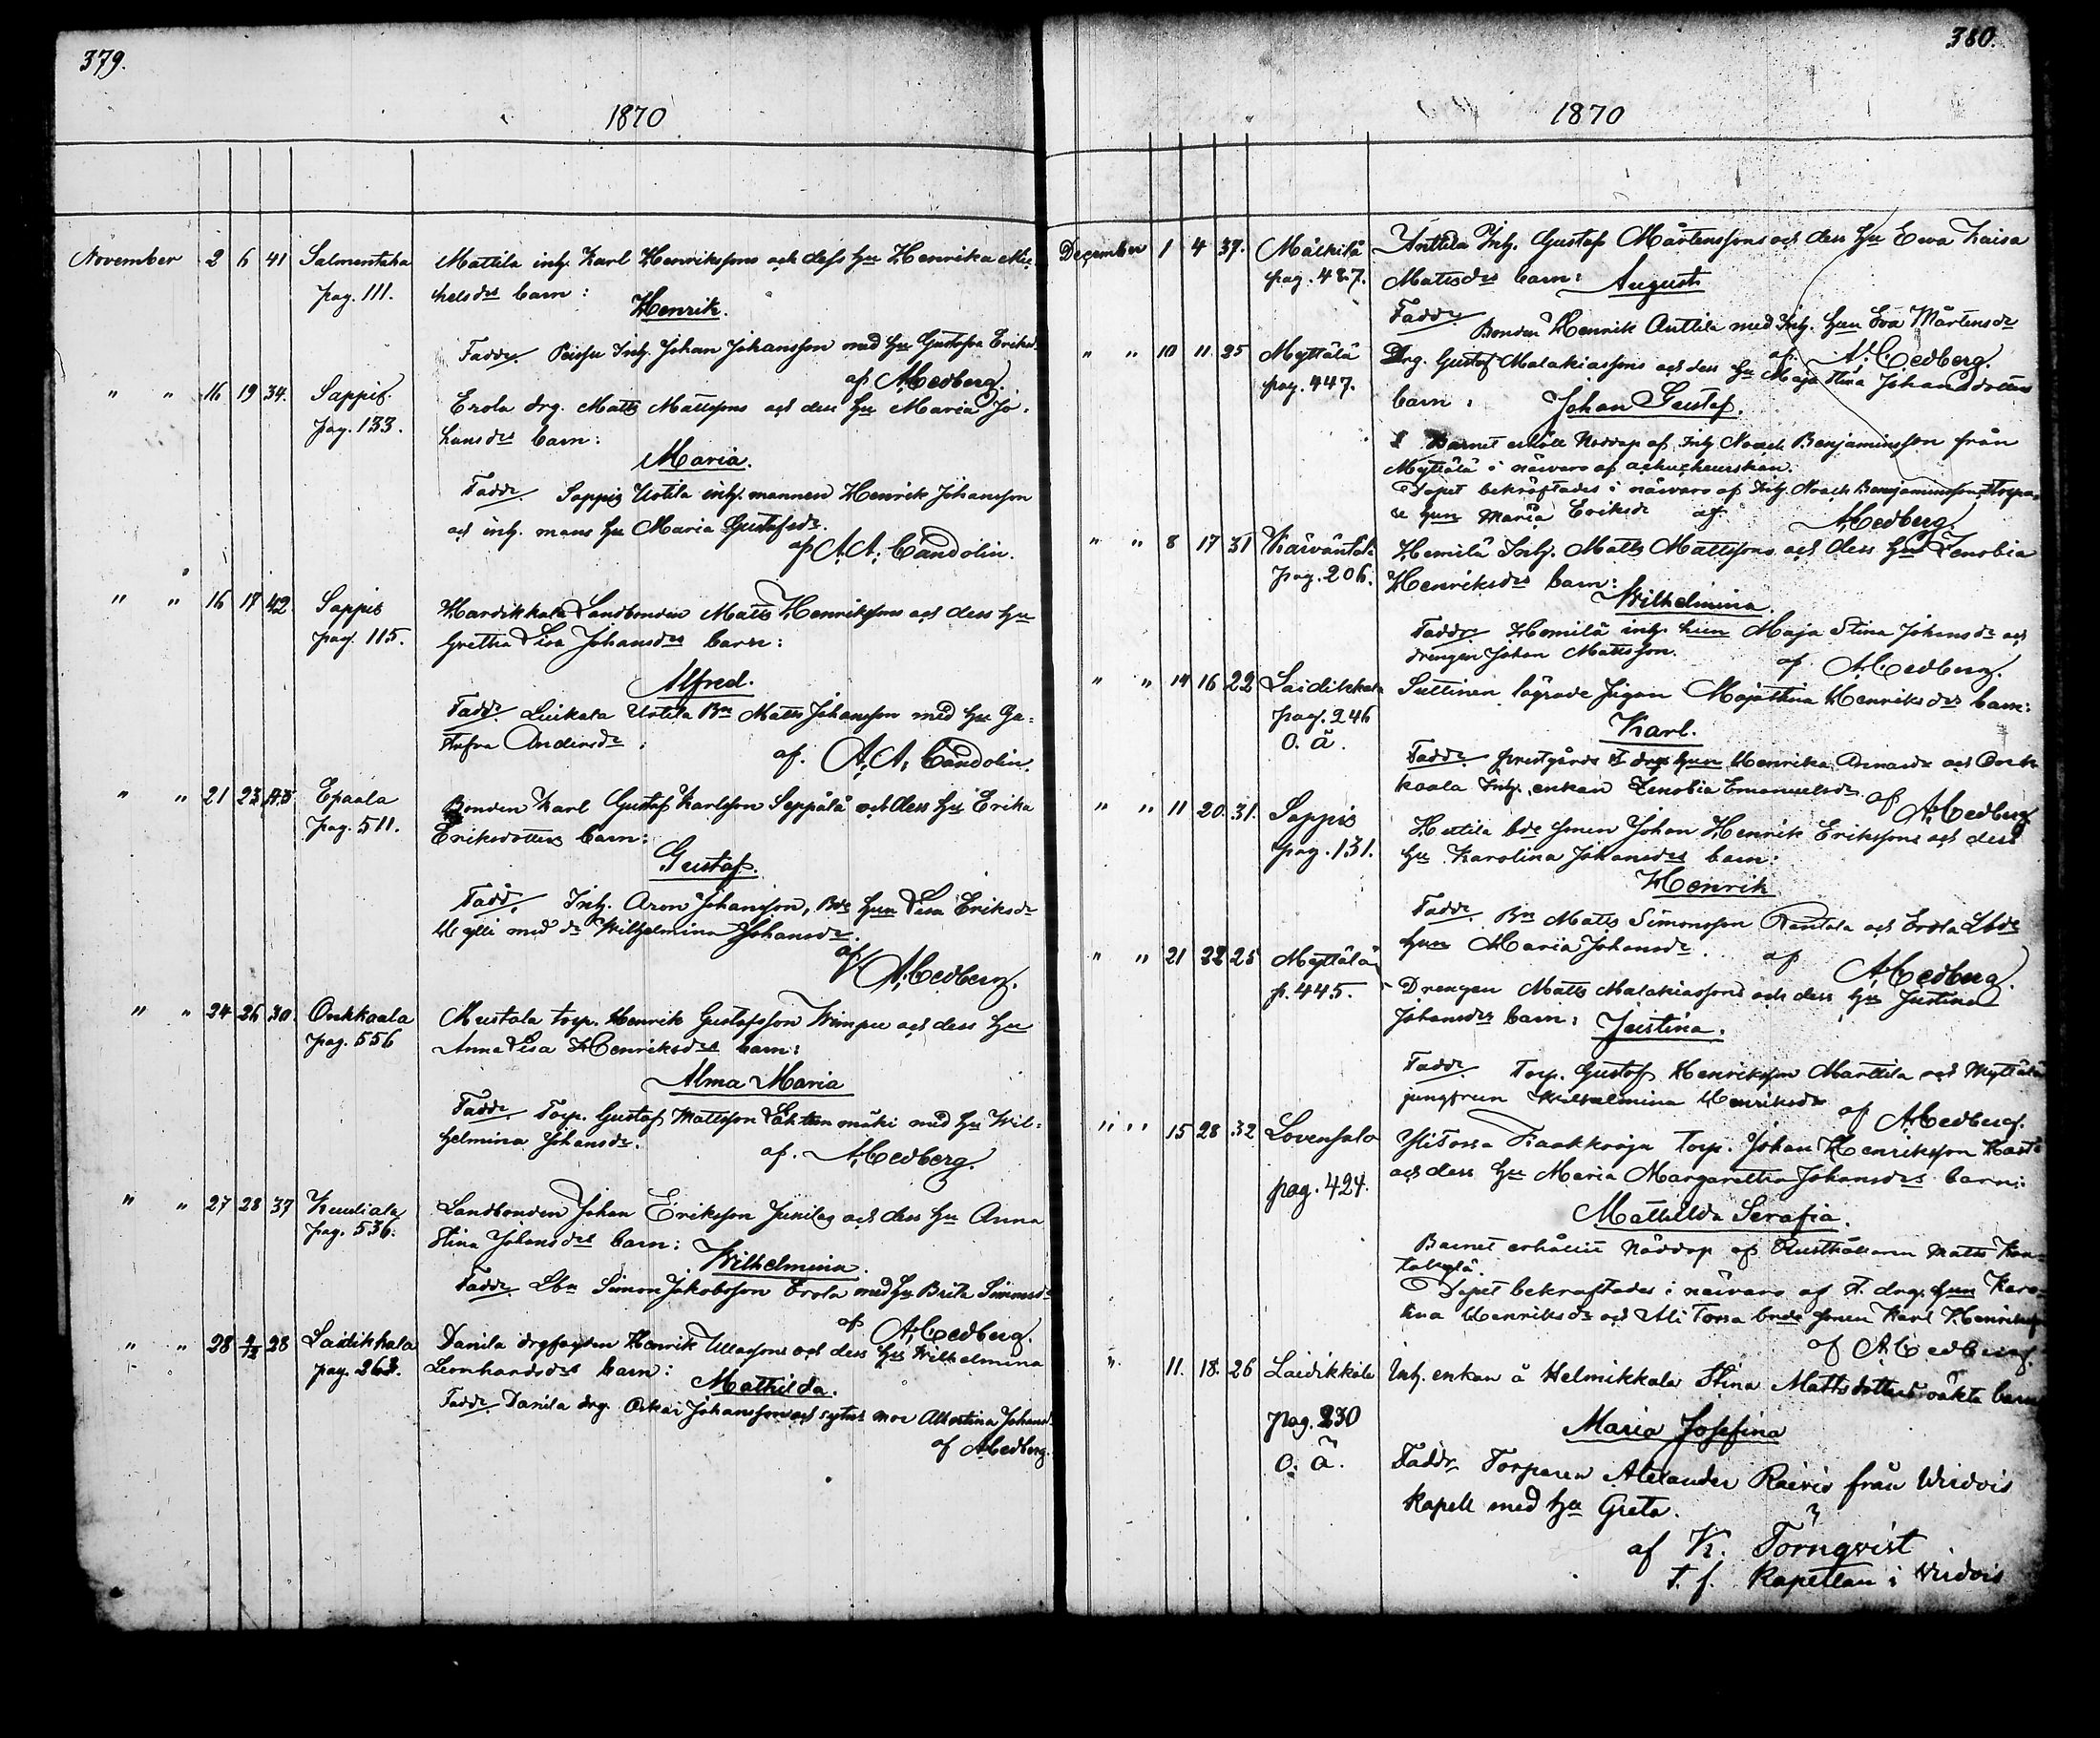 379.
1870
November 2 6 41 Salmentaka Mattila inh. Karl Henrikssons och dess hu Henrika Mi-
pag. 111. helsdrs barn:
Henrik.
Faddr. Inh. Johan Johansson med hu Gustafva Eriksd
af A. Cedberg.
" " 16 19 34. Sappis. Erola drg. Matts Mattssons och dess hu Maria Jo-
pag. 133. hansdrs barn:
Maria.
Faddr Sappis Uotila inh. mannen Henrik Johansson
och inh. mans hu Maria Gustafsdr.
af A. A. Candolin.
" " 16 17 42 Sappis Hardikkala Landbonden Matts Henrikssons och dess hu
pag. 115. Gretha Lisa Johansdrs barn:
Alfred.
Faddr Uotila Bn Matts Johansson med hu Gu-
stafva Andersdr.
af. A. A. Candolin.
" " 21 23 Epaala Bonden Karl Gustaf Karlsson Seppälä och dess hu Erika
pag. 511. Eriksdotters barn:
Gustaf.
Fadd. Inh. Aron Johansson, Bde hun Lisa Eriksdr
med dr Wilhelmina Johansdr.
af A. Cedberg.
" " 24 26 30. Onkkaala Mustala torp. Henrik Gustafsson Wimpu och dess hu
pag. 556 Anna Lisa Henriksdrs barn:
Alma Maria
Faddr. Torp. Gustaf Mattsson mäki med hu Wil-
helmina Johansdr.
af. A. Cedberg.
" " 27 28 37 Kuuliala Landbonden Johan Eriksson Junila och dess hu Anna
pag. 536. Stina Johansdrs barn:
Wilhelmina.
Faddr. Lbn Simon Jakobsson Erola med hu Brita Simonsdr
af A. Cedberg.
" " 28 4/12 28 Laitikkala Danila Henrik och dess hu Wilhelmina
pag. 263. Leonhardsdrs barn:
Mathilda.
Faddr. Danila drg. Oskar Johansson och Albertina Johansd
af A. Cedberg.
380.
1870
December 1 4 37. Mälkilä Anttila Inh. Gustaf Mårtenssons och dess hu Ewa Kaisa
pag. 487. Mattsdrs barn: August
Faddr. Bonden Henrik Anttila med Inh. hun Eva Mårtensdr
af A. Cedberg.
" " 10 11 25 Myttälä Drg. Gustaf Malakiassons och dess hu Maja Stina Johansdotters
pag. 447. barn: Johan Gustaf.
Barnet erhöll Nöddop af Inh Noach Benjaminsson från
Myttälä i närvaro af
Dopet bekräftades i närvaro af Inh. Noach Benjaminsson
hun Maria Eriksdr af A. Cedberg.
" " 8 17 31 Kärväntala Hemilä Inh. Matts Mattssons och dess hu Zenobia
pag. 206. Henriksdrs barn:
Wilhelmina.
Faddr. Hemilä inh. hun Maja Stina Johansdr och
drengen Johan Mattsson.
af A. Cedberg.
" " 14 16 22 Laidikkala Suttinen lägrade pigan Majastina Henriksdrs barn:
pag. 246 Karl.
O. ä.
Faddr. prestgårds drg hun Henrika och Onk-
kaala Inh. enkan Zenobia Emanuelsdr
af A. Cedberg
" " 11 20. 31. Sappis bde sonen Johan Henrik Erikssons och dess
pag. 131. hu Karolina Johansdrs barn:
Henrik
Faddr. Bn Matts Simonsson Rantala och Erola Lbde
hun Maria Johansdr.
af A. Cedberg.
" " 21 22 25 Myttälä Drengen Matts Malakiassons och dess hu Justina
p. 445. Johansdrs barn: Justina.
Faddr. Torp. Gustaf Henriksson Marttila och Myttälä
jungfrun Wilhelmina Henriksdr
af A. Cedberg.
" " 15 28 32 Lovensalo Torp. Johan Henriksson
pag. 424. och dess hu Maria Margaretha Johansdrs barn:
Mathilda Serafia.
Barnet erhållit Nöddop af Rusthållaren Matts
Dopet bekräftades i närvaro af drg. hun Karo-
lina Henriksdr och Ali Torsa bnde sonen Karl Henriksson
af A. Cedberg.
" 11. 18. 26 Laidikkala Inh. enkan å Helmikkala Stina Mattsdotters oäkta barn
pag. 230 Maria Josefina
O. ä. Faddr Torparen Alexander från Urdvis
Kapell med hu Greta.
af K. Törnqvist
t. f. Kapellan i Urdvis